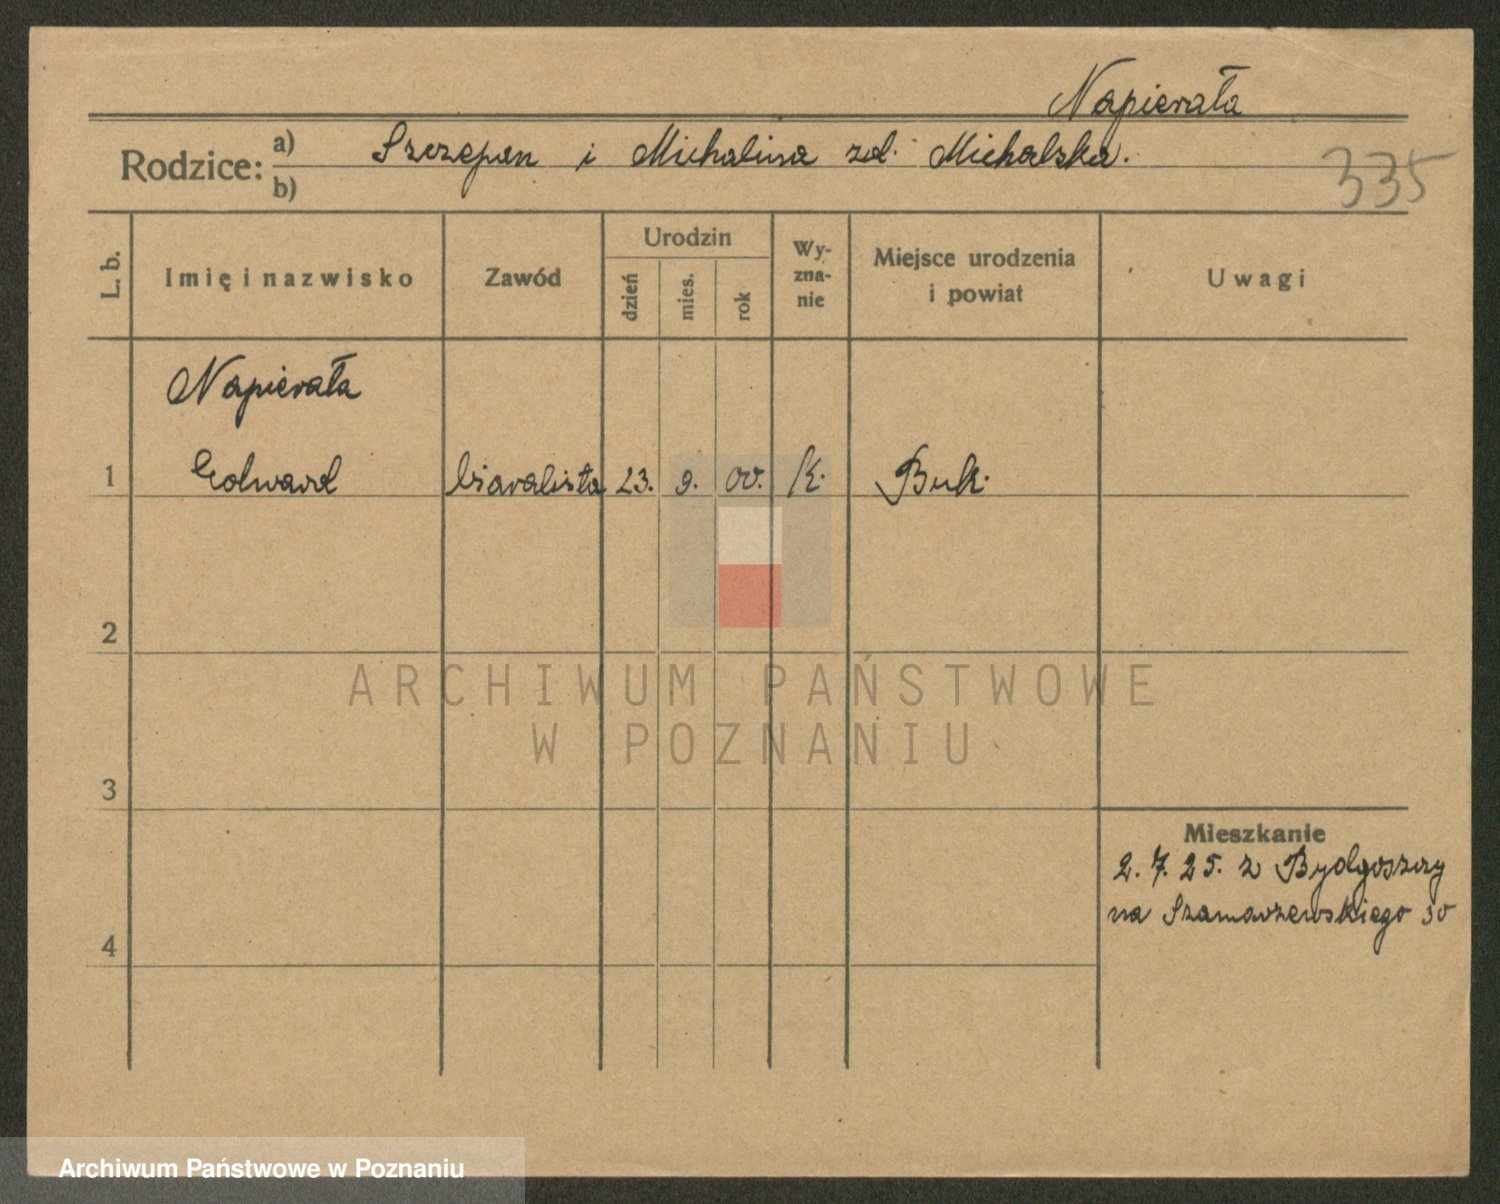 Napierała
Rodzice: a) Szczepan i Michalina zd. Michalska.
b)
335
L. b.
Imię i nazwisko
Zawód
Urodzin
dzień
mies.
rok
Wy-
zna-
nie
Miejsce urodzenia
i powiat
Uwagi
Napierała
1 Edward biuralista 23. 9. 00. K. Buk.
2
ARCHIWUM PAŃSTWOWE
W POZNANIU
3
Mieszkanie
2. 7. 25. z Bydgoszczy
na Szamarzewskiego 30
4
Archiwum Państwowe w Poznaniu